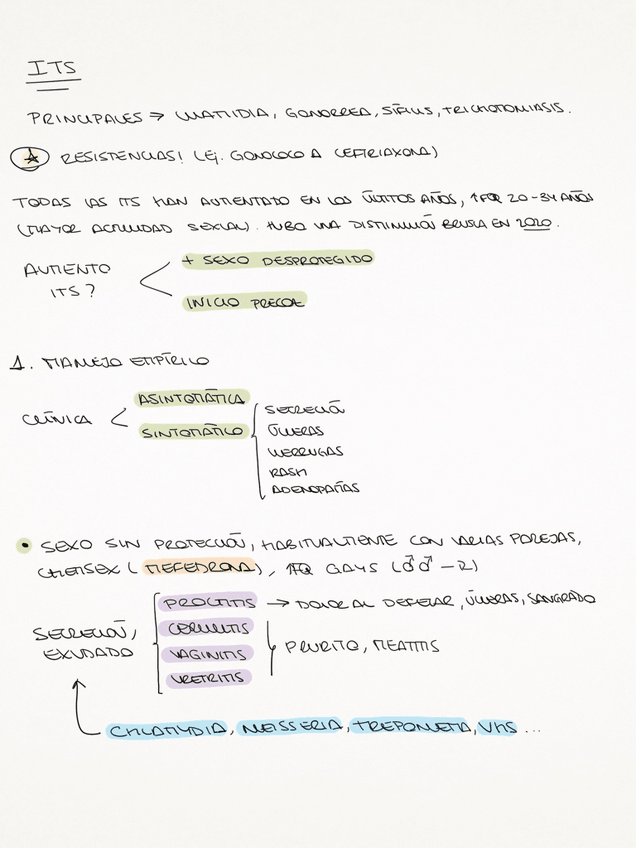 ITS
PRINCIPALES → CLAMIDIA, GONORREA, SÍFILIS, TRICHOMONIASIS.
★ RESISTENCIAS! (EJ. GONOCOCO A CEFTRIAXONA)
TODAS LAS ITS HAN AUMENTADO EN LOS ÚLTIMOS AÑOS, ↑FQ 20-34 AÑOS
(MAYOR ACTIVIDAD SEXUAL). HUBO UNA DISMINUCIÓN BRUSCA EN 2020.
+ SEXO DESPROTEGIDO
AUMENTO
ITS?
INICIO PRECOZ
1. MANEJO EMPÍRICO
ASINTOMÁTICA
CLÍNICA
SINTOMÁTICO
SECRECIÓN
ÚLCERAS
VERRUGAS
RASH
ADENOPATÍAS
• SEXO SIN PROTECCIÓN, HABITUALMENTE CON VARIAS PAREJAS,
CHEMSEX (MEFEDRONA), ↑FQ GAYS (♂♂ -R)
PROCTITIS → DOLOR AL DEFECAR, ÚLCERAS, SANGRADO
SECRECIÓN,
EXUDADO
CERVICITIS
VAGINITIS
URETRITIS
PRURITO, MEATITIS
CHLAMYDIA, NEISSERIA, TREPONEMA, VHS ...